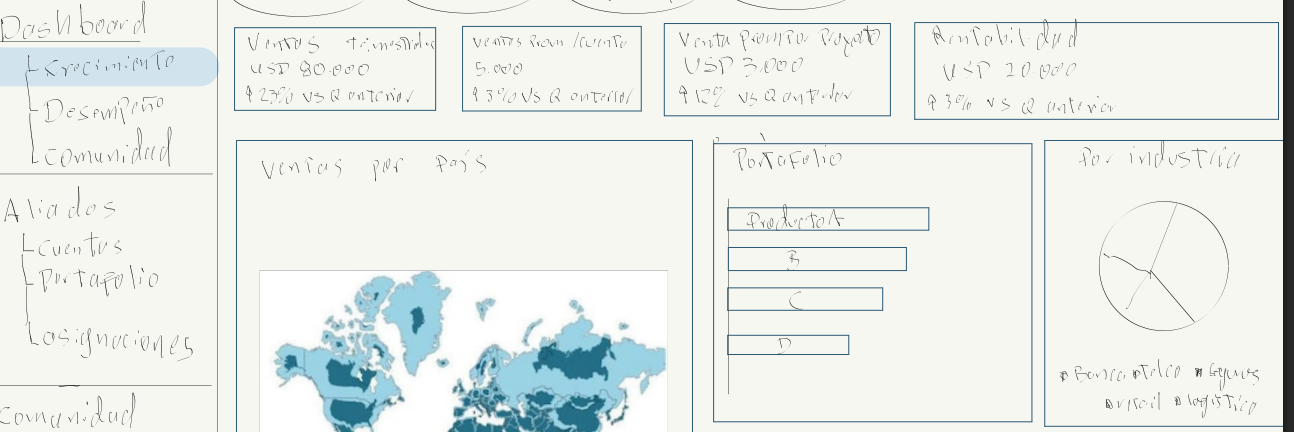 Dashboard
Krecimiento
Desempeño
Comunidad
Aliados
Cuentas
Portafolio
asignaciones
Comunidad
Ventas trimestrales
USD 80.000
↑ 23% vs Q anterior
Ventas Prom / cuenta
5.000
↑ 3% vs Q anterior
Venta promedio Proyecto
USD 3.000
↑ 12% vs Q anterior
Rentabilidad
USD 20.000
↑ 3% vs Q anterior
Ventas por país
Portafolio
Producto A
B
C
D
Por industria
Banca Telco
retail logística